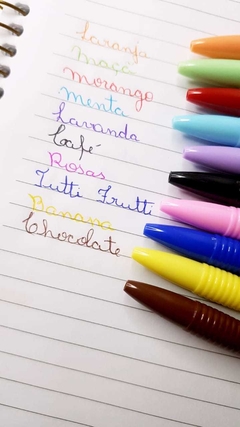 Laranja
Maçã
Morango
Menta
Lavanda
Café
Rosas
Tutti Frutti
Banana
Chocolate